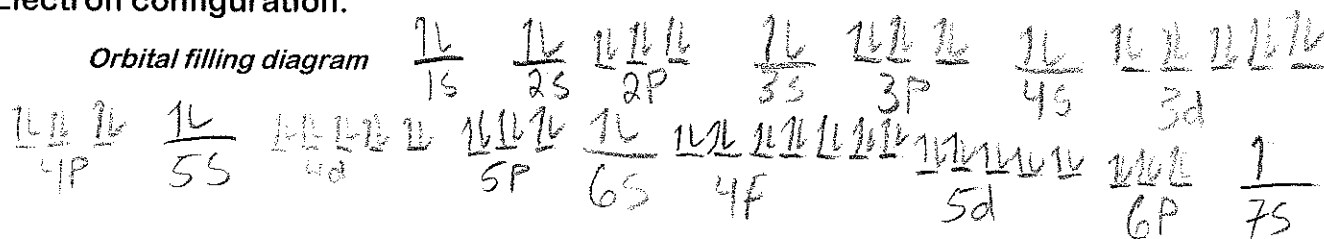 Electron configuration:
Orbital filling diagram 1s 2s 2p 3s 3p 4s 3d
4p 5s 4d 5p 6s 4f 5d 6p 7s